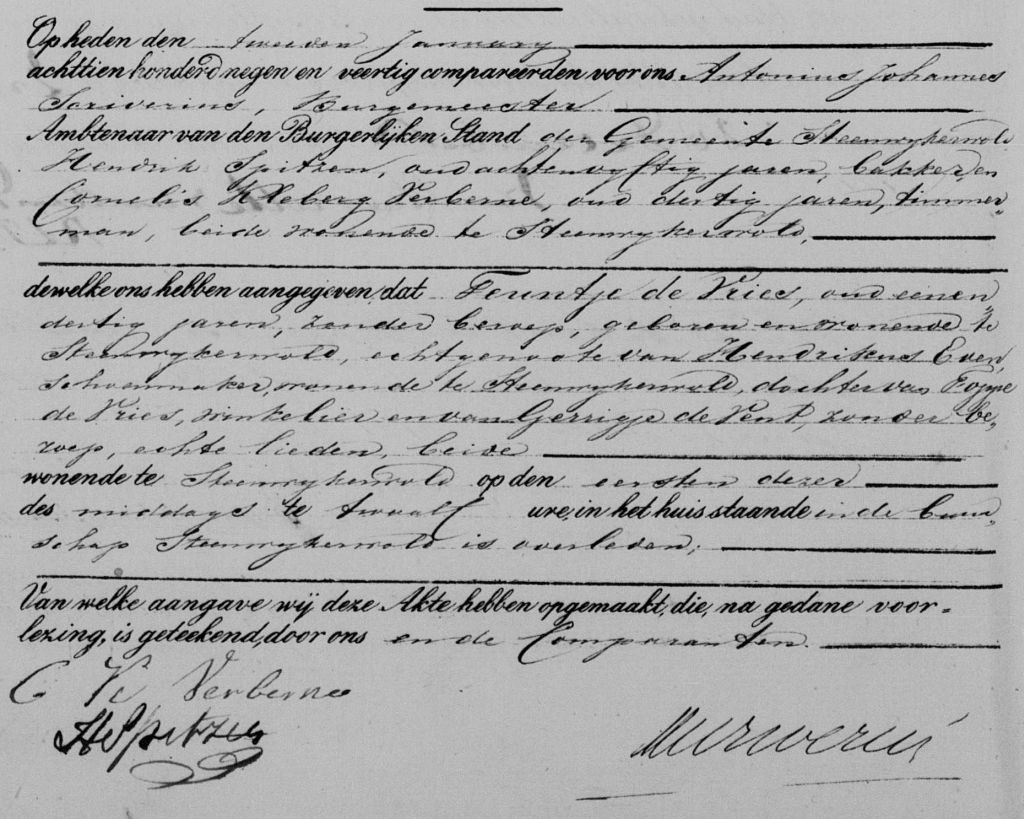 Op heden den tweeden January
achttien honderd negen en veertig compareerden voor ons Antonius Johannes
Scriverius, Burgemeester
Ambtenaar van den Burgerlijken Stand der Gemeente Steenwykerwold
Hendrik Spitzen, oud achtenvyftig jaren, bakker, en
Cornelis Kleberg Verberne, oud dertig jaren, timmer=
man, beide wonende te Steenwykerwold,
dewelke ons hebben aangegeven, dat Teuntje de Vries, oud eenen
dertig jaren, zonder beroep, geboren en wonende te
Steenwykerwold, echtgenoote van Hendrikus Even,
schoenmaker, wonende te Steenwykerwold, dochter van Foppe
de Vries, winkelier en van Gerrigje de Vent, zonder be=
roep, echte lieden, beide
wonende te Steenwykerwold op den eersten dezer
des middags te twaalf ure, in het huis staande in de buur=
schap Steenwykerwold is overleden;
Van welke aangave wij deze Akte hebben opgemaakt, die, na gedane voor-
lezing, is geteekend, door ons en de Comparanten.
C Kl Verberne
H Spitzen